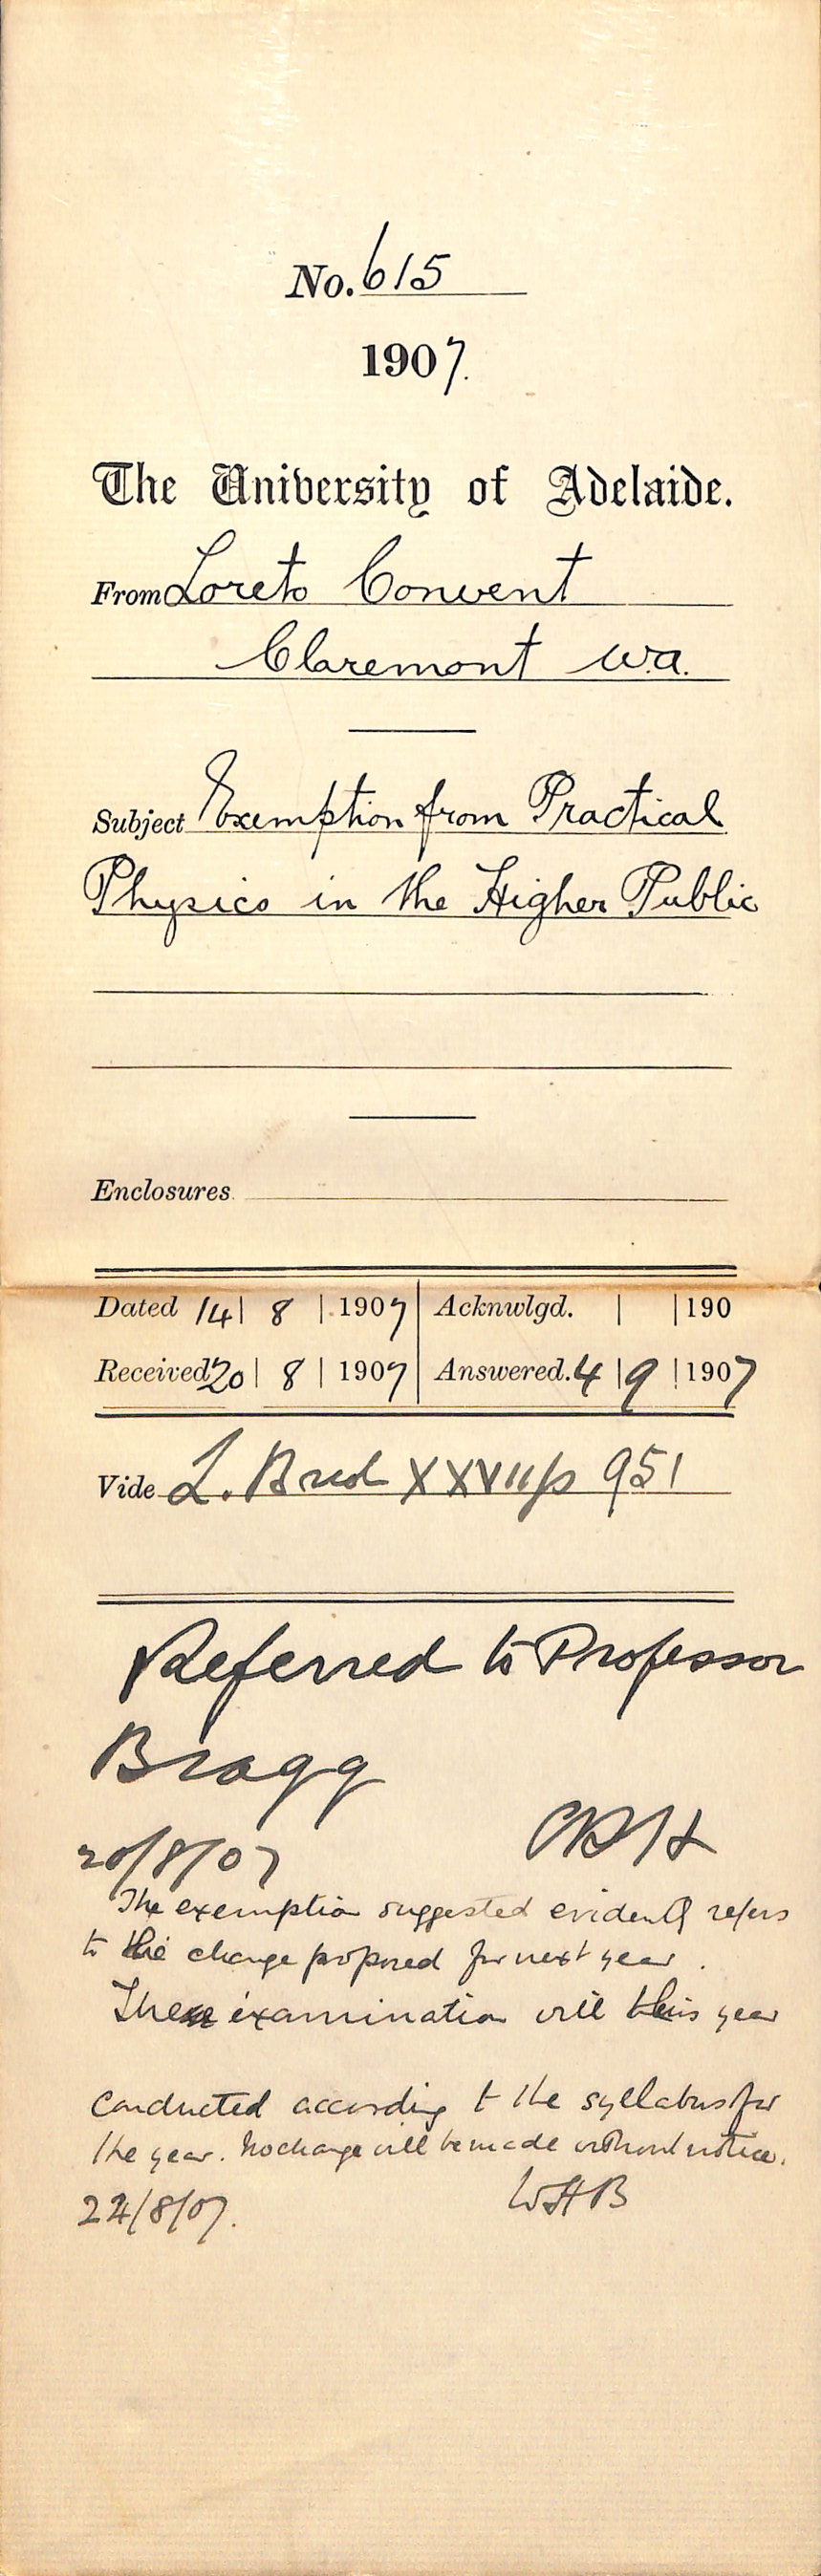 No. 615
1907.
The University of Adelaide.
From Loreto Convent
Claremont W.A.
Subject Exemption from Practical
Physics in the Higher Public
Enclosures
Dated 14 | 8 | 1907 | Acknwlgd. | | 190
Received 20 | 8 | 1907 | Answered. 4 | 9 | 1907
Vide L. XXVII/p 951
Referred to Professor
Bragg
20/8/07
The exemption suggested evidently refers
to the change proposed for next year.
These examination will this year
conducted according to the syllabus for
the year. No change will be made without notice.
22/8/07. WHB